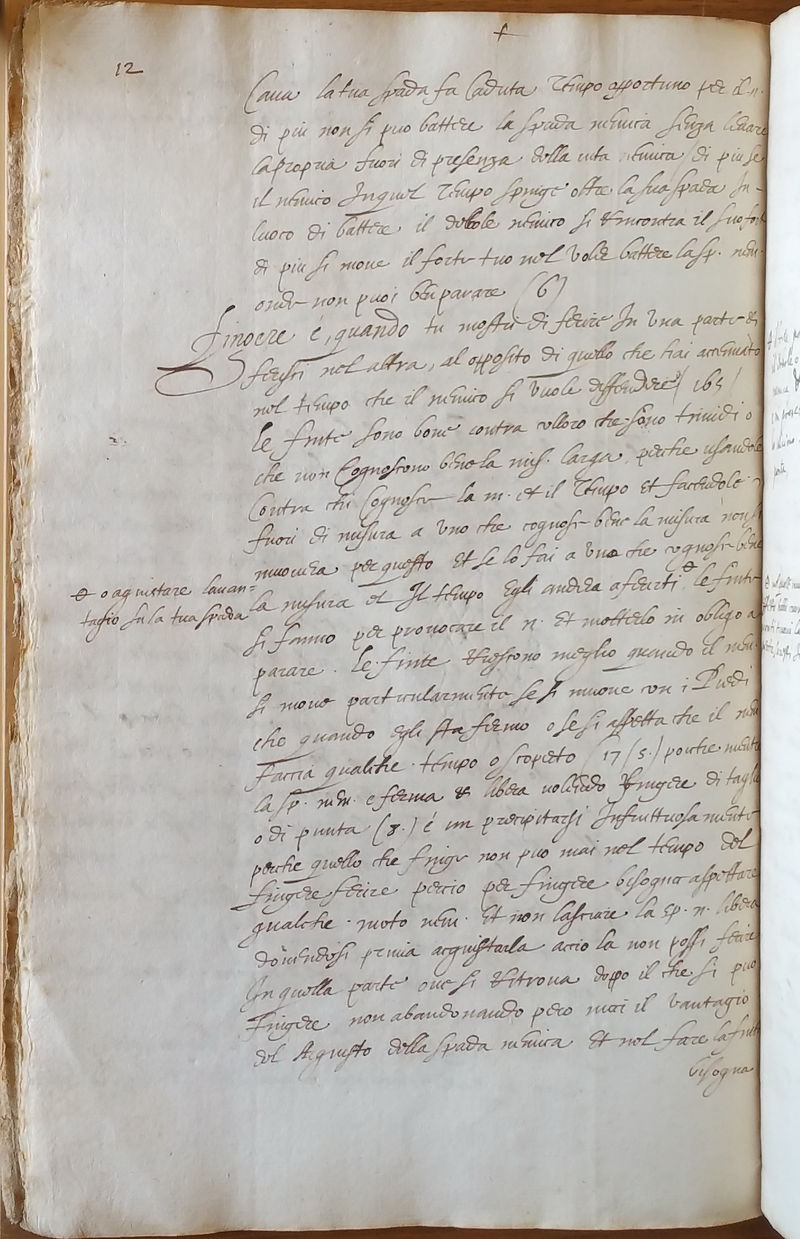 12
Cava la tua spada fa Caduta Tempo opportuno per il n.
di più non si puo battere la spada nemica senza levare
la propria fuori di presenza della vita nemica / di più se
il nemico In quel Tempo spinge oltre la sua spada In-
luoco di battere il debole nemico si rincontra il suo forte
di più si move il forte tuo nel voler battere la sp. nem.
onde non puoi ben parare (6)
Fingere é, quando tu mostri di ferire In Una parte et
ferisci nel altra, al opposito di quello che hai accennato
nel tempo che il nemico si vuole diffendere (165)
le finte sono bone contra colloro che sono timidi o
che non Cognoscono bene la mis. larga, perche usandole
Contra chi Cognosce la m. et il Tempo et facendole
fuori di misura a Uno che cognosce bene la misura non si
moverà per questo et se lo fai a Uno che cognosce bene
et o aquistare lavan=
tagio su la tua spada
la misura et Il tempo Egli anderà a ferirti et le finte
si fanno per provocare il n. Et metterlo in obligo a
parare. le finte riescono meglio quando il nem.
si move particularmente se si muove con i Piedi
che quando egli sta fermo o se si aspetta che il nem
faccia qualche tempo o scoperto (17 (5.) perche mentre
la sp. nem. e ferma et libera vollendo fingere di taglio
o di punta (3.) é un precipitarsi Infruttuosamente
perche quello che finge non puo mai nel tempo del
fingere ferire percio per fingere bisogna aspettare
qualche moto nem. Et non lasciare la sp. n. libera
dovendosi prima acquistarla accio la non possi ferire
In quella parte ove si ritrova doppo il che si puo
fingere non abandonando pero mai il vantagio
del Acquisto della spada nemica Et nel fare la finta
bisogna